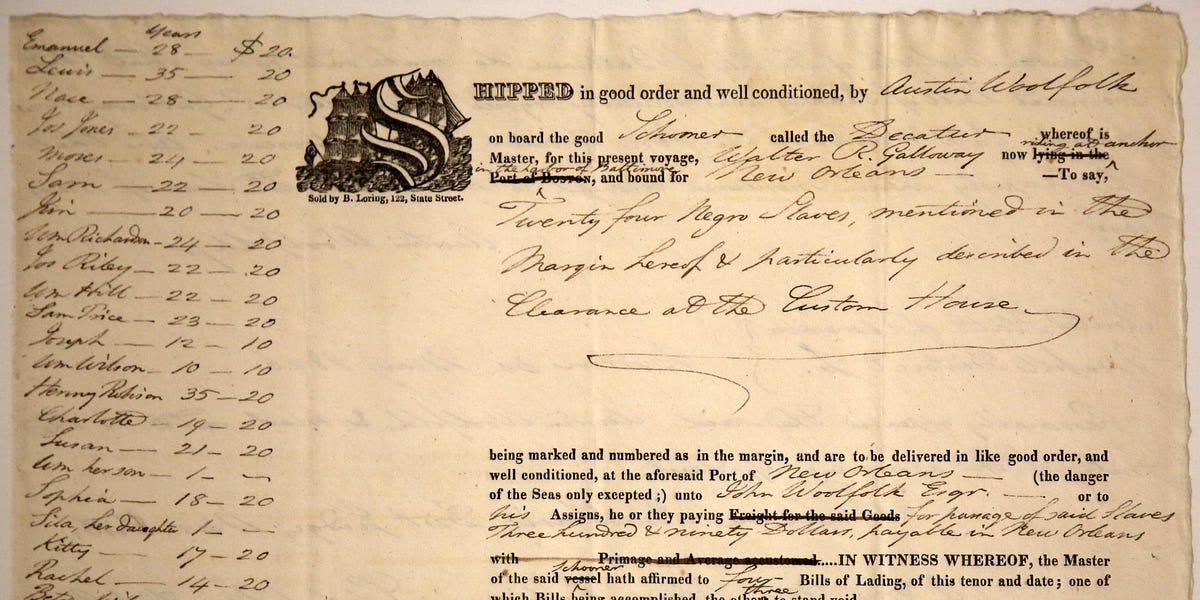 years
Emanuel — 28 — $ 20.
Lewis — 35 — 20
Nace — 28 — 20
Jos Jones — 22 — 20
Moses — 24 — 20
Sam — 22 — 20
Jim — 20 — 20
Wm Richardson — 24 — 20
Jos Riley — 22 — 20
Wm Hill — 22 — 20
Sam Price — 23 — 20
Joseph — 12 — 10
Wm Wilson — 10 — 10
Henny Robison 35 — 20
Charlotte — 19 — 20
Susan — 21 — 20
Wm her son — 1 —
Sophia — 18 — 20
Sila, her daughter 1 —
Kitty — 17 — 20
Rachel — 14 — 20
Sold by B. Loring, 122, State Street.
SHIPPED in good order and well conditioned, by Austin Woolfolk
on board the good Schooner called the Decatur whereof is
riding at anchor
Master, for this present voyage, Walter R. Galloway now lying in the
in the harbor of Baltimore
Port of Boston, and bound for New Orleans — —To say,
Twenty four Negro Slaves, mentioned in the
Margin hereof & particularly described in the
Clearance at the Custom House
being marked and numbered as in the margin, and are to be delivered in like good order, and
well conditioned, at the aforesaid Port of New Orleans — (the danger
of the Seas only excepted ;) unto John Woolfolk Esqr. — or to
his Assigns, he or they paying Freight for the said Goods for passage of said Slaves
Three hundred & ninety Dollars, payable in New Orleans
with Primage and Average accustomed.....IN WITNESS WHEREOF, the Master
Schooner
of the said vessel hath affirmed to four Bills of Lading, of this tenor and date ; one of
three
which Bills being accomplished, the others to stand void.